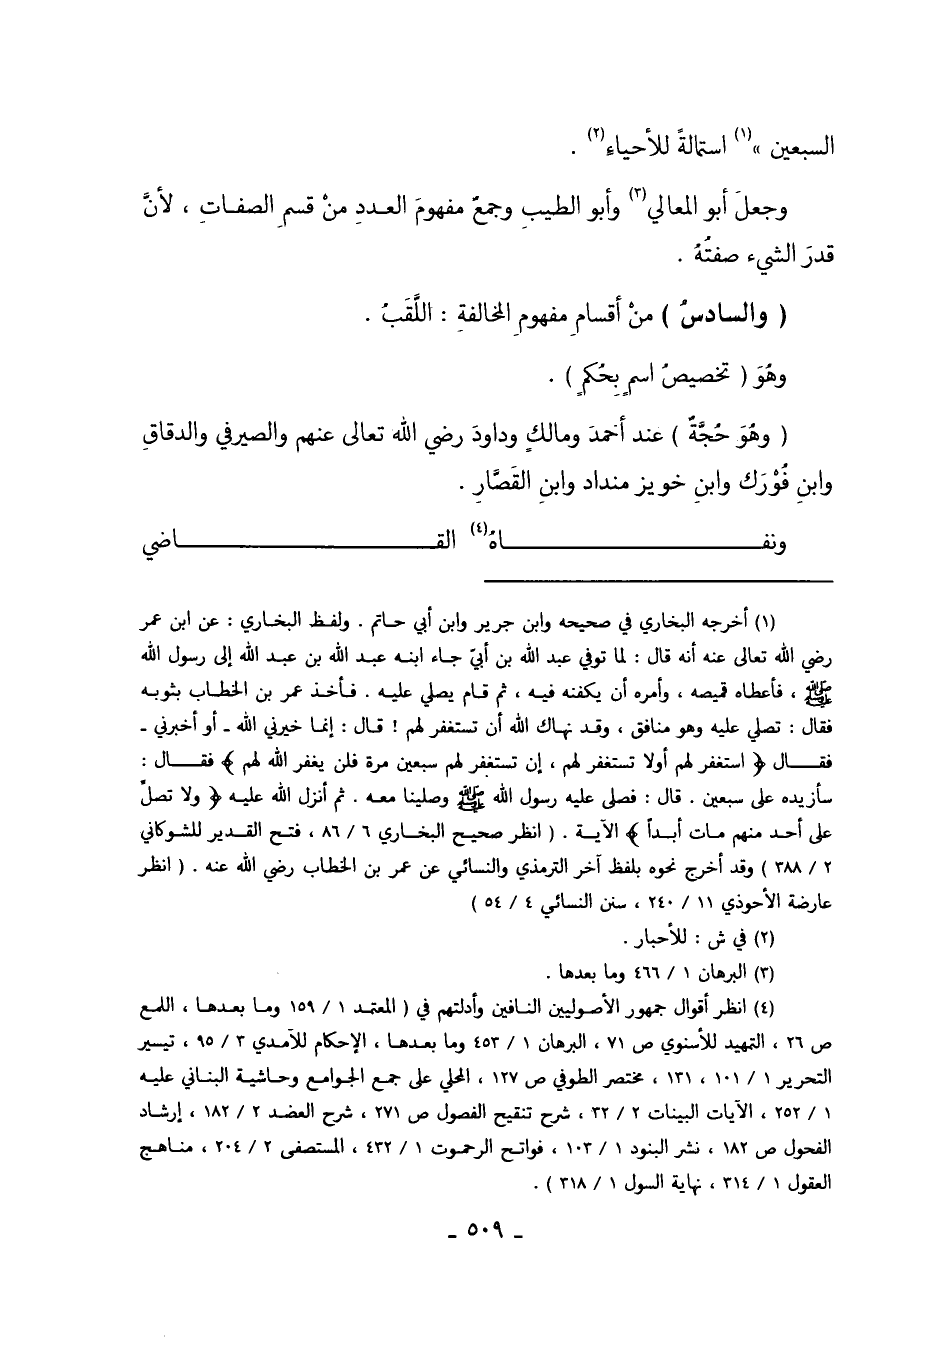 السبعين »(١) استمالةً للأحياء(٢) .
وجعلَ أبو المعالي(٣) وأبو الطيبِ وجمعٌ مفهومَ العددِ منْ قسمِ الصفاتِ ، لأنَّ
قدرَ الشيء صفتُهُ .
( والسادسُ ) منْ أقسامِ مفهومِ المخالفةِ : اللَّقَبُ .
وهُوَ ( تخصيصُ اسمٍ بِحُكمٍ ) .
( وهُوَ حُجَّةٌ ) عند أحمدَ ومالكٍ وداودَ رضي الله تعالى عنهم والصيرفي والدقاقِ
وابنِ فُوْرَك وابنِ خويز منداد وابنِ القَصَّارِ .
ونفـــــــاهُ(٤) القـــــــاضي
(١) أخرجه البخاري في صحيحه وابن جرير وابن أبي حاتم . ولفظ البخاري : عن ابن عمر
رضي الله تعالى عنه أنه قال : لما توفي عبد الله بن أبيّ جاء ابنه عبد الله بن عبد الله إلى رسول الله
ﷺ ، فأعطاه قميصه ، وأمره أن يكفنه فيه ، ثم قام يصلي عليه . فأخذ عمر بن الخطاب بثوبه
فقال : تصلي عليه وهو منافق ، وقد نهاك الله أن تستغفر لهم ! قال : إنما خيرني الله ـ أو أخبرني ـ
فقـــال ﴿ استغفر لهم أولا تستغفر لهم ، إن تستغفر لهم سبعين مرة فلن يغفر الله لهم ﴾ فقـــال :
سأزيده على سبعين . قال : فصلى عليه رسول الله ﷺ وصلينا معه . ثم أنزل الله عليه ﴿ ولا تصلّ
على أحد منهم مات أبداً ﴾ الآية . ( انظر صحيح البخاري ٦ / ٨٦ ، فتح القدير للشوكاني
٢ / ٣٨٨ ) وقد أخرج نحوه بلفظ آخر الترمذي والنسائي عن عمر بن الخطاب رضي الله عنه . ( انظر
عارضة الأحوذي ١١ / ٢٤٠ ، سنن النسائي ٤ / ٥٤ )
(٢) في ش : للأحبار .
(٣) البرهان ١ / ٤٦٦ وما بعدها .
(٤) انظر أقوال جمهور الأصوليين النافين وأدلتهم في ( المعتمد ١ / ١٥٩ وما بعدها ، اللمع
ص ٢٦ ، التمهيد للأسنوي ص ٧١ ، البرهان ١ / ٤٥٣ وما بعدها ، الإحكام للآمدي ٣ / ٩٥ ، تيسير
التحرير ١ / ١٠١ ، ١٣١ ، مختصر الطوفي ص ١٢٧ ، المحلي على جمع الجوامع وحاشية البناني عليه
١ / ٢٥٢ ، الآيات البينات ٢ / ٣٢ ، شرح تنقيح الفصول ص ٢٧١ ، شرح العضد ٢ / ١٨٢ ، إرشاد
الفحول ص ١٨٢ ، نشر البنود ١ / ١٠٣ ، فواتح الرحموت ١ / ٤٣٢ ، المستصفى ٢ / ٢٠٤ ، مناهج
العقول ١ / ٣١٤ ، نهاية السول ١ / ٣١٨ ) .
ـ ٥٠٩ ـ